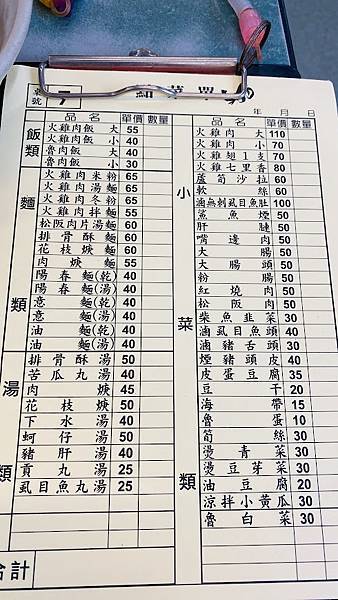 號 7
年 月 日
品名 單價 數量
飯類
火雞肉飯 大 55
火雞肉飯 小 40
魯肉飯 大 40
魯肉飯 小 30
麵類
火雞肉米粉 65
火雞肉湯麵 65
火雞肉冬粉 65
火雞肉拌麵 55
松阪肉片湯麵 60
排骨酥麵 60
花枝焿麵 60
肉焿麵 55
陽春麵(乾) 40
陽春麵(湯) 40
意麵(乾) 40
意麵(湯) 40
油麵(乾) 40
油麵(湯) 40
湯類
排骨酥湯 50
苦瓜丸湯 40
肉焿 45
花枝焿 50
下水湯 40
蚵仔湯 50
豬肝湯 40
貢丸湯 25
虱目魚丸湯 25
合計
品名 單價 數量
小菜類
火雞肉 大 110
火雞肉 小 70
火雞翅1支 70
火雞七里香 80
蘆筍沙拉 60
軟絲 60
滷無刺虱目魚肚 100
鯊魚煙 50
肝腱 50
嘴邊肉 50
大腸 50
大腸頭 50
粉腸 50
紅燒肉 50
松阪肉 50
柴魚韭菜 30
滷虱目魚頭 40
滷豬舌頭 30
煙豬頭皮 40
皮蛋豆腐 35
豆干 20
海帶 15
魯蛋 10
筍絲 30
燙青菜 30
燙豆芽菜 30
油豆腐 20
涼拌小黃瓜 30
魯白菜 30